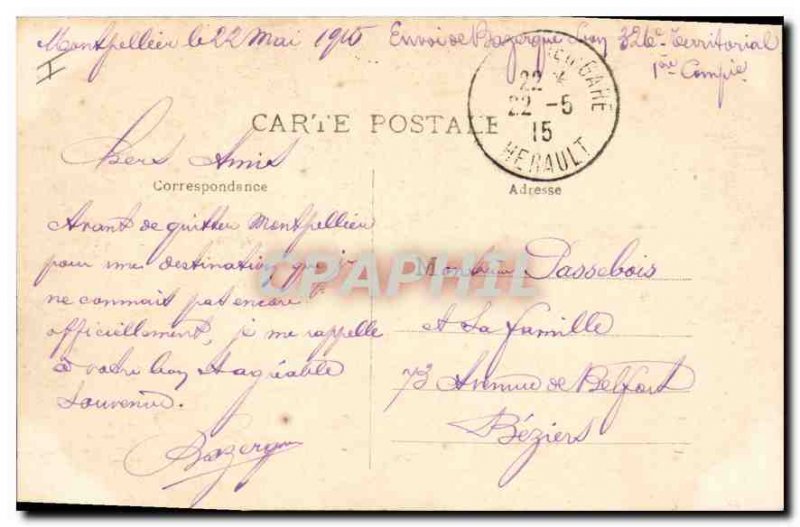 Montpellier le 22 Mai 1915 Envoi de Bazergue Lon 326e Territorial
1ère Compie
I
ER-GARE
22
22 -5
15
HERAULT
CARTE POSTALE
Chers Amis
Correspondance
Adresse
Avant de quitter Montpellier
pour une destination que je
ne connait pas encore
officiellement, je me rappelle
à votre bon et agréable
Souvenir.
Bazergue
CPAPHIL
Monsieur Passebois
et La famille
73 Avenue de Belfort
Béziers